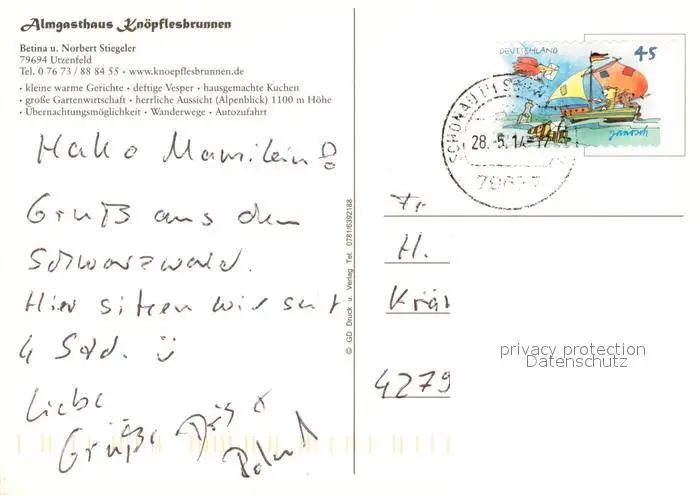 Almgasthaus Knöpflesbrunnen
Betina u. Norbert Stiegeler
79694 Utzenfeld
Tel. 0 76 73 / 88 84 55 · www.knoepflesbrunnen.de
· kleine warme Gerichte · deftige Vesper · hausgemachte Kuchen
· große Gartenwirtschaft · herrliche Aussicht (Alpenblick) 1100 m Höhe
· Übernachtungsmöglichkeit · Wanderwege · Autozufahrt
Hallo Mamilein!
Gruß aus dem
Schwarzwald.
Hier sitzen wir seit
4 Std.
Liebe
Grüße
© GD Druck u. Verlag Tel. 0781/6392188
DEUTSCHLAND 45
janosch
SCHÖNAU
28.-5.14-17
Fr
H.
Krä
4279
privacy protection
Datenschutz